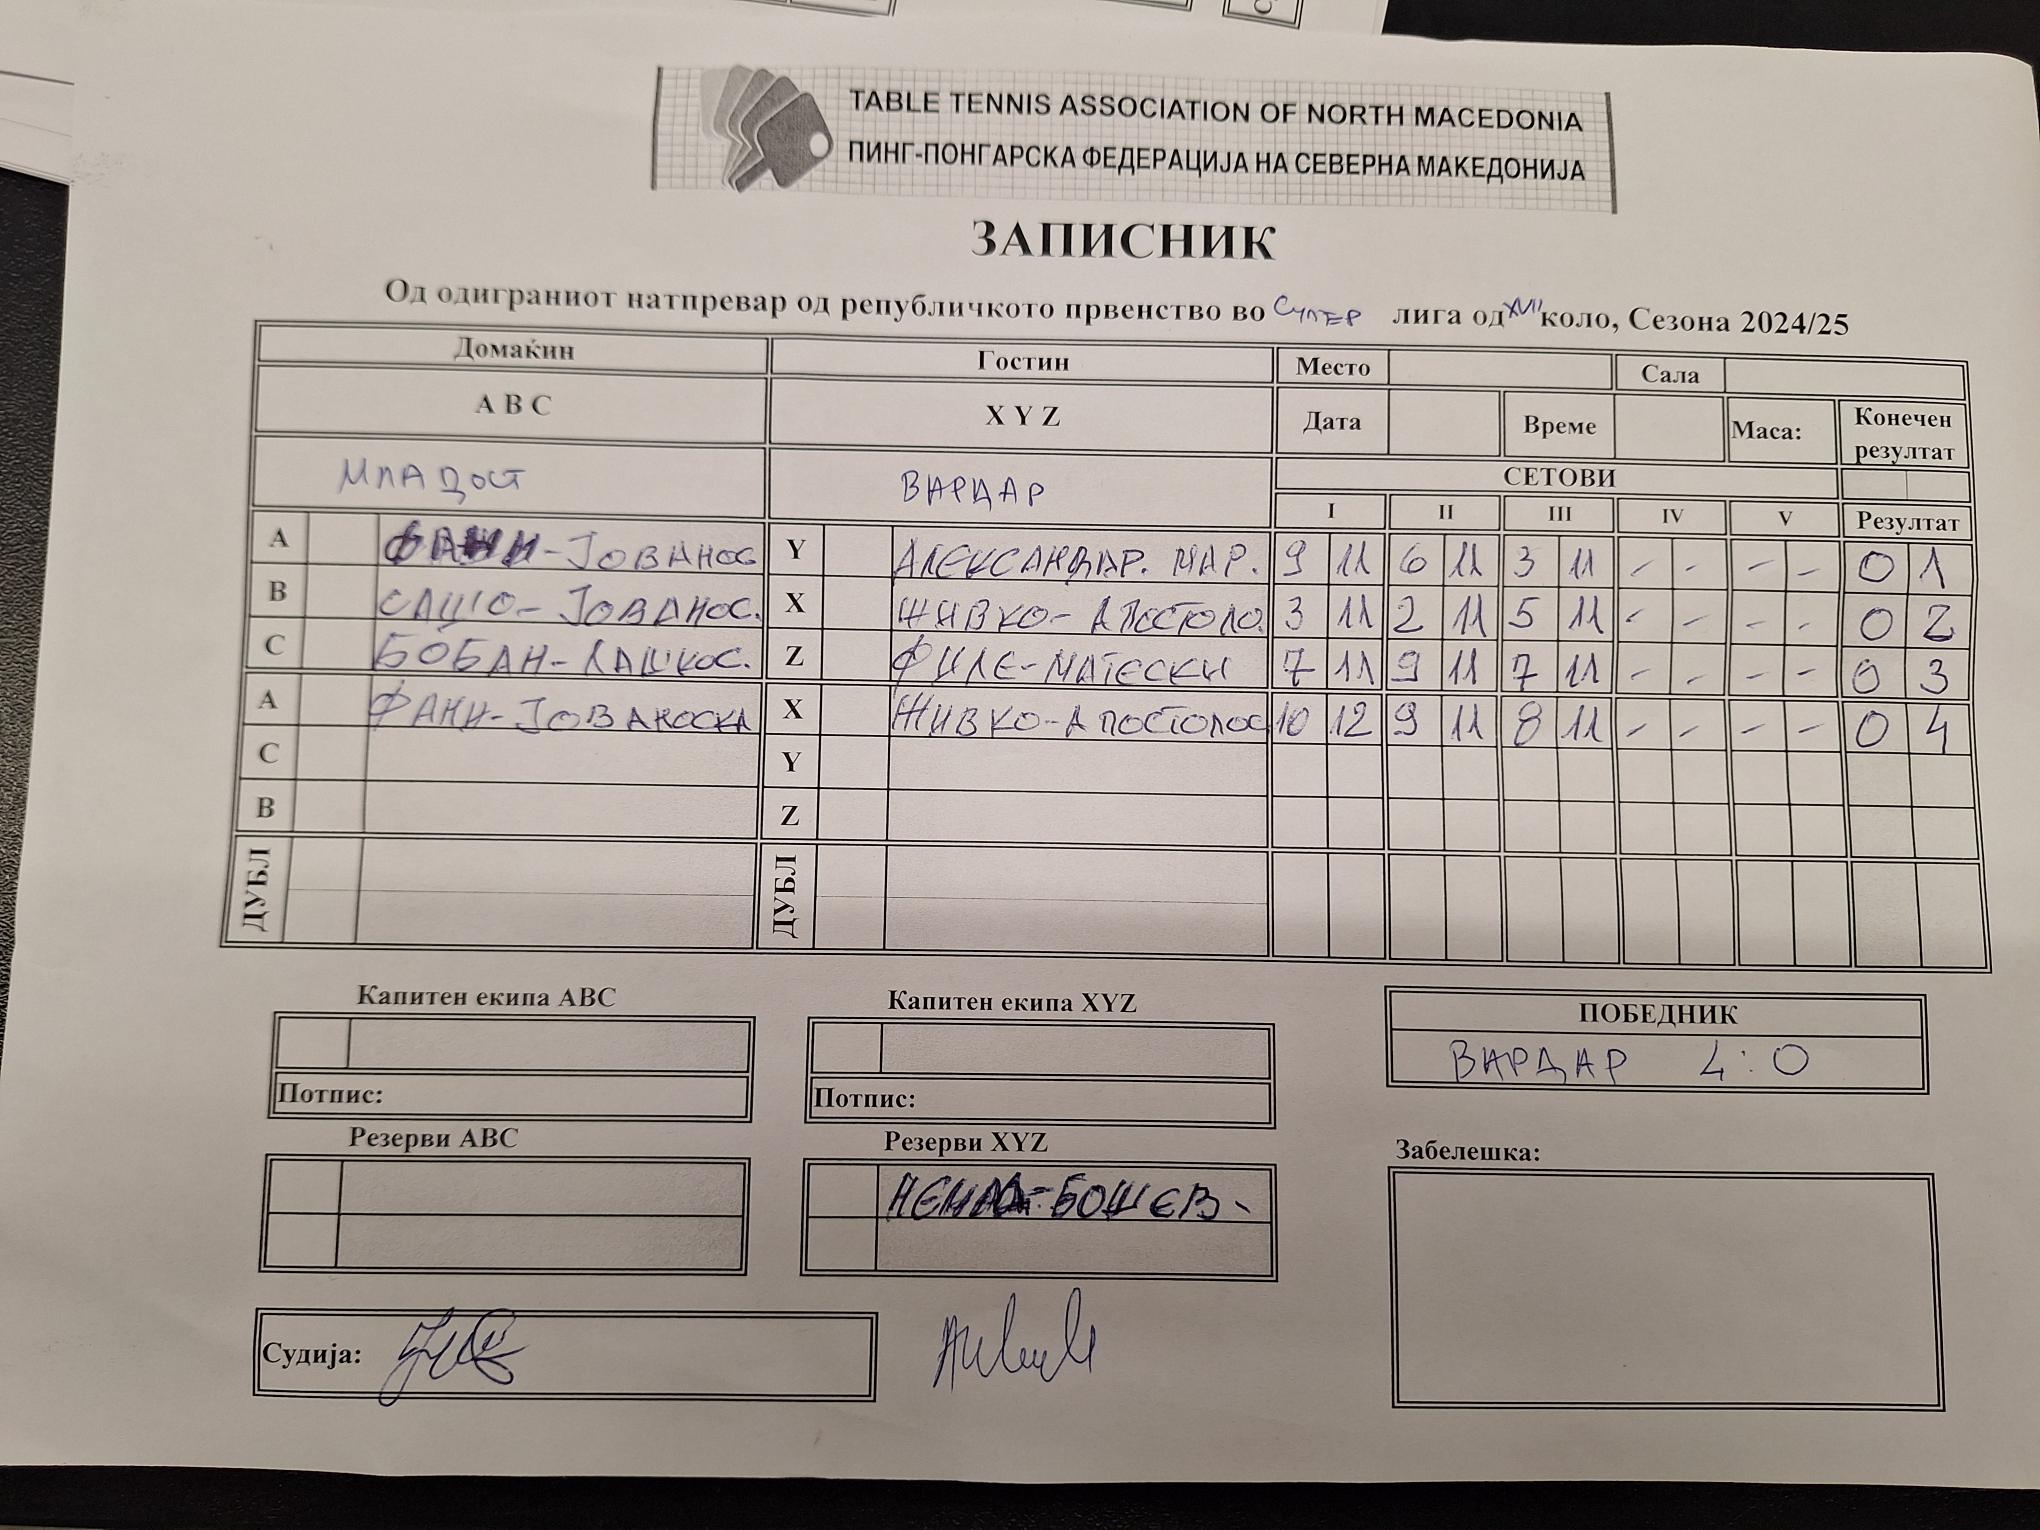 TABLE TENNIS ASSOCIATION OF NORTH MACEDONIA
ПИНГ-ПОНГАРСКА ФЕДЕРАЦИЈА НА СЕВЕРНА МАКЕДОНИЈА
ЗАПИСНИК
Од одиграниот натпревар од републичкото првенство во СУПЕР лига од XVII коло, Сезона 2024/25
Домаќин Гостин Место Сала
A B C X Y Z Дата Време Маса: Конечен резултат
МЛАДОСТ ВАРДАР СЕТОВИ
I II III IV V Резултат
A ФАНИ-ЈОВАНОС Y АЛЕКСАНДАР. МАР. 9 11 6 11 3 11 - - - - 0 1
B САШО-ЈОВАНОС. X ЖИВКО-АПОСТОЛО. 3 11 2 11 5 11 - - - - 0 2
C БОБАН-ЛАШКОС. Z ФИЛЕ-МАТЕСКИ 7 11 9 11 7 11 - - - - 0 3
A ФАНИ-ЈОВАНОСКА X ЖИВКО-АПОСТОЛОС 10 12 9 11 8 11 - - - - 0 4
C Y
B Z
ДУБЛ ДУБЛ
Капитен екипа ABC Капитен екипа XYZ
ПОБЕДНИК
ВАРДАР 4:0
Потпис: Потпис:
Резерви ABC Резерви XYZ
Забелешка:
БОШЕВ-
Судија: